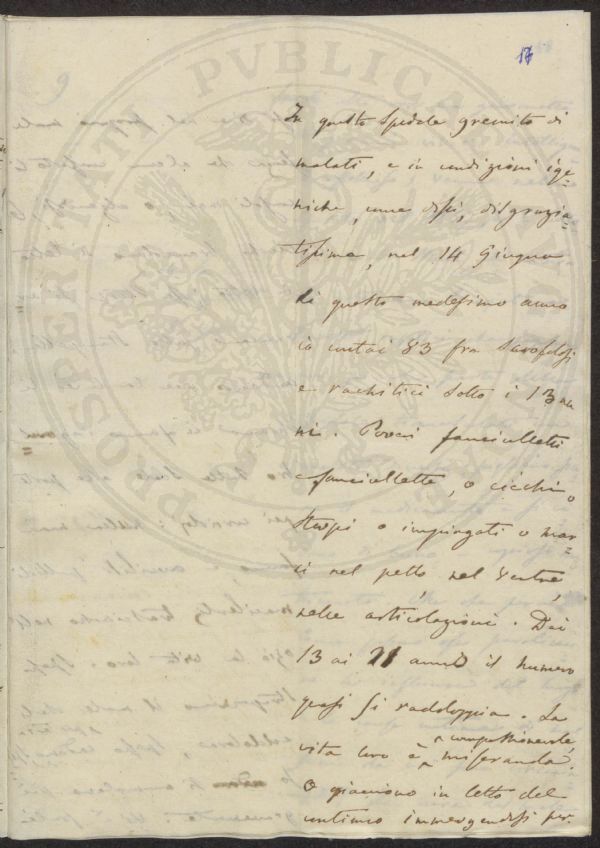 17
In questo Spedale gremito di
malati, e in condizioni ige=
niche, come dissi, disgrazia=
tissime, nel 14 Giugno
di questo medesimo anno
io contai 83 fra Scrofolosi
e rachitici sotto i 13 an
ni. Poveri fanciulletti
e fanciullette, o ciechi, o
storpi o impiagati o mar=
ci nel petto, nel ventre,
nelle articolazioni. Dai
13 ai 21 anno il numero
quasi si raddoppia. La
vita loro è compassionevole, miseranda.
O giacciono in letto del
continuo immergendosi per.
PVBLICAE
PROSPERITATI